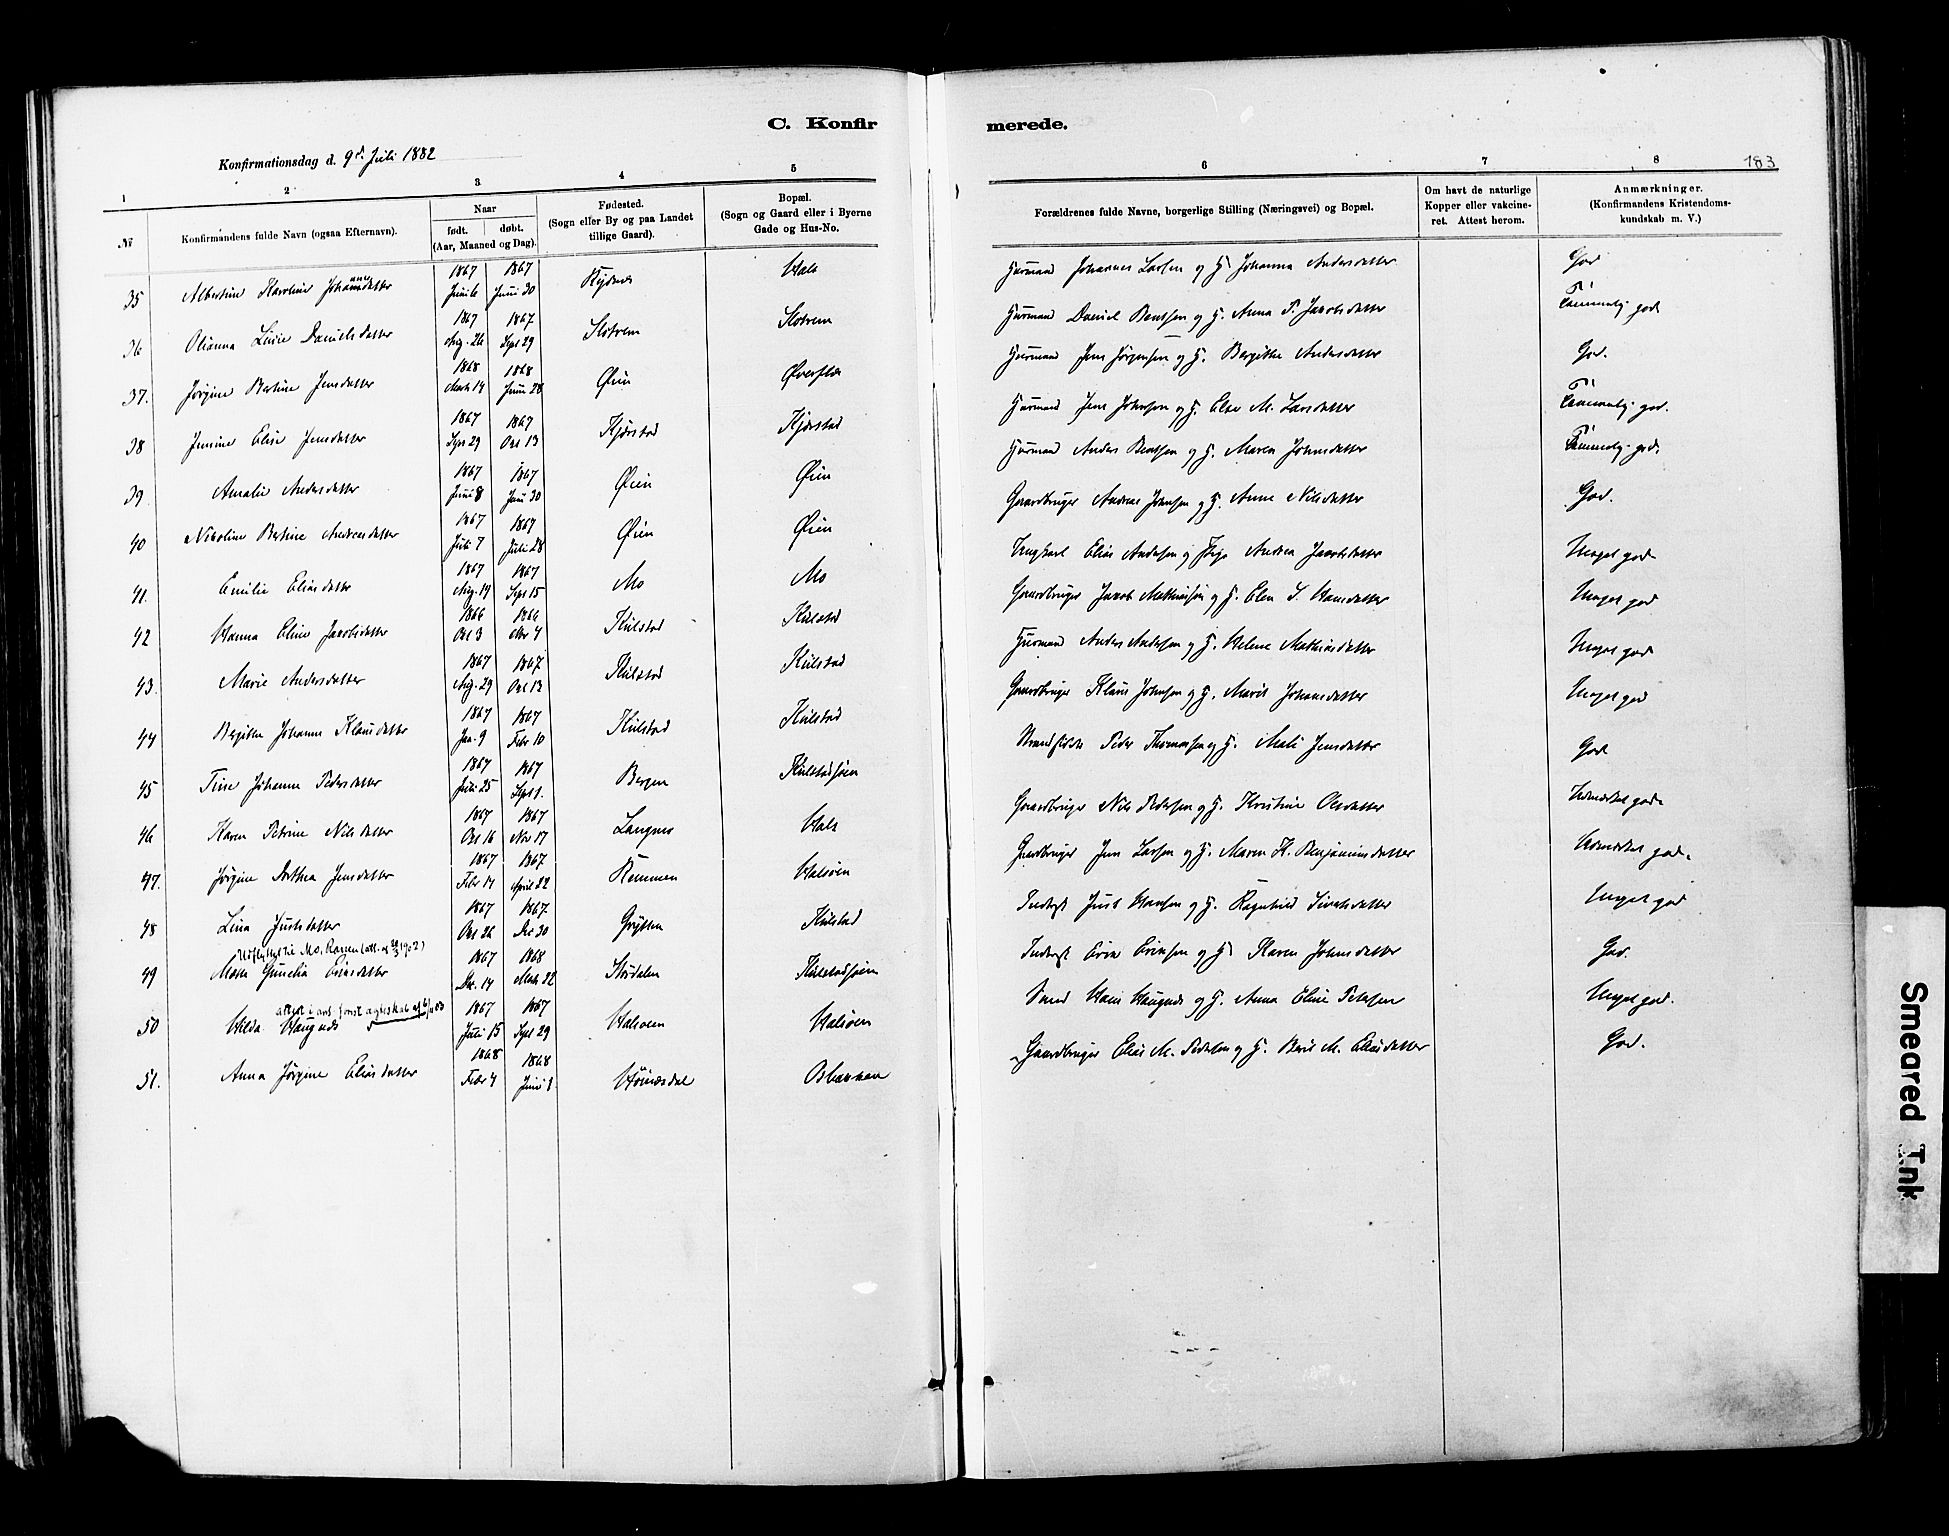 C. Konfir merede.
Konfirmationsdag d. 9d Juli 1882
183
1 2 3 4 5 6 7 8
No
Konfirmandens fulde Navn (ogsaa Efternavn).
Naar
født. døbt.
(Aar, Maaned og Dag).
Fødested.
(Sogn eller By og paa Landet
tillige Gaard).
Bopæl.
(Sogn og Gaard eller i Byerne
Gade og Hus-No.
Forældrenes fulde Navne, borgerlige Stilling (Næringsvei) og Bopæl.
Om havt de naturlige
Kopper eller vakcine-
ret. Attest herom.
Anmærkninger.
(Konfirmandens Kristendoms-
kundskab m. V.)
35 Albertine Karoline 1867 Juni 6 1867 Juni 30 Hals Husmand Johannes Larsen og H. Johanna Andersdatter God
36 Olianna Danielsdatter 1867 Aug. 26 1867 Sept 29 Slotrem Slotrem Husmand Daniel Bentsen og H. Anna P. Jacobsdatter Temmelig god
37. Jørgine Bertine Jensdatter 1868 Marts 14 1868 Juni 28 Øien Husmand Jens Jørgensen og H. Bergitte Andersdatter God.
38 Jensine Elise Jensdatter 1867 Sept 29 1867 Oct 13 Kjærstad Kjærstad Husmand Jens Johnsen og H. Else M. Larsdatter Temmelig god.
39. Amalie Andersdatter 1867 Juni 8 1867 Juni 30 Øien Øien Husmand Anders Bentsen og H. Maren Johnsdatter Temmelig god.
40 Nikoline Bertine Andreasdatter 1867 Juli 7 1867 Juli 28 Øien Øien Gaardbruger Andreas Johnsen og H. Anne Nilsdatter God.
41. Emilie Eliasdatter 1867 Aug. 19 1867 Sept 15 Mo Mo Ungkarl Elias Andersen og Pige Andrea Jacobsdatter Meget god
42 Hanna Eline Jacobsdatter 1866 Oct 3 1866 Nov 4 Kulstad Kulstad Gaardbruger Jacob Mathiasen og H. Elen S. Hansdatter Meget god
43. Marie Andersdatter 1867 Aug. 29 1867 Oct 13 Kulstad Kulstad Husmand Anders Andersen og H. Helene Mathiasdatter Meget god
44 Bergitte Johanna Klausdatter 1867 Jan. 9 1867 Febr 10 Kulstad Kulstad Gaardbruger Klaus Johnsen og H. Marit Johansdatter Meget god
45 Tine Johanna Pedersdatter 1867 Juli 25 1867 Sept 1. Bergen Kulstadsøen Strandsidder Peder Thomassen og H. Mali Jensdatter God
46 Karen Petrine Nilsdatter 1867 Oct 16 1867 Nov 17 Langnes Hals Gaardbruger Nils Pedersen og H. Kristine Olesdatter Udmærket god.
47. Jørgine Dorthea Jensdatter 1867 Febr 14 1867. April 22 Remmen Halsøen Gaardbruger Jens Larsen og H. Maren K. Benjaminsdatter Udmærket god.
48 Lina Justsdatter 1867 Oct 26 1867. Dec 30 Grytten Kulstad Inderst Just Hansen og H. Ragnhild Sivertsdatter Meget god
Udflyttet til Mo, Ranen
49 Eriksdatter 1867 Dec. 14 1868 Marts 22 Kulstadsøen Inderst Erik Eriksen og H. Karen Johnsdatter God.
50 Hilda Haugnæs 1867 Juli 15 1867 Sept 29 Halsøen Halsøen Hans Haugnæs og H. Anna Eline Petersen Meget god.
51. Anna Jørgine Eliasdatter 1868 Febr 4 1868 Juni 1 Gaardbruger Elias M. Pedersen og H. Berit M. Eliasdatter God.
Smeared Ink